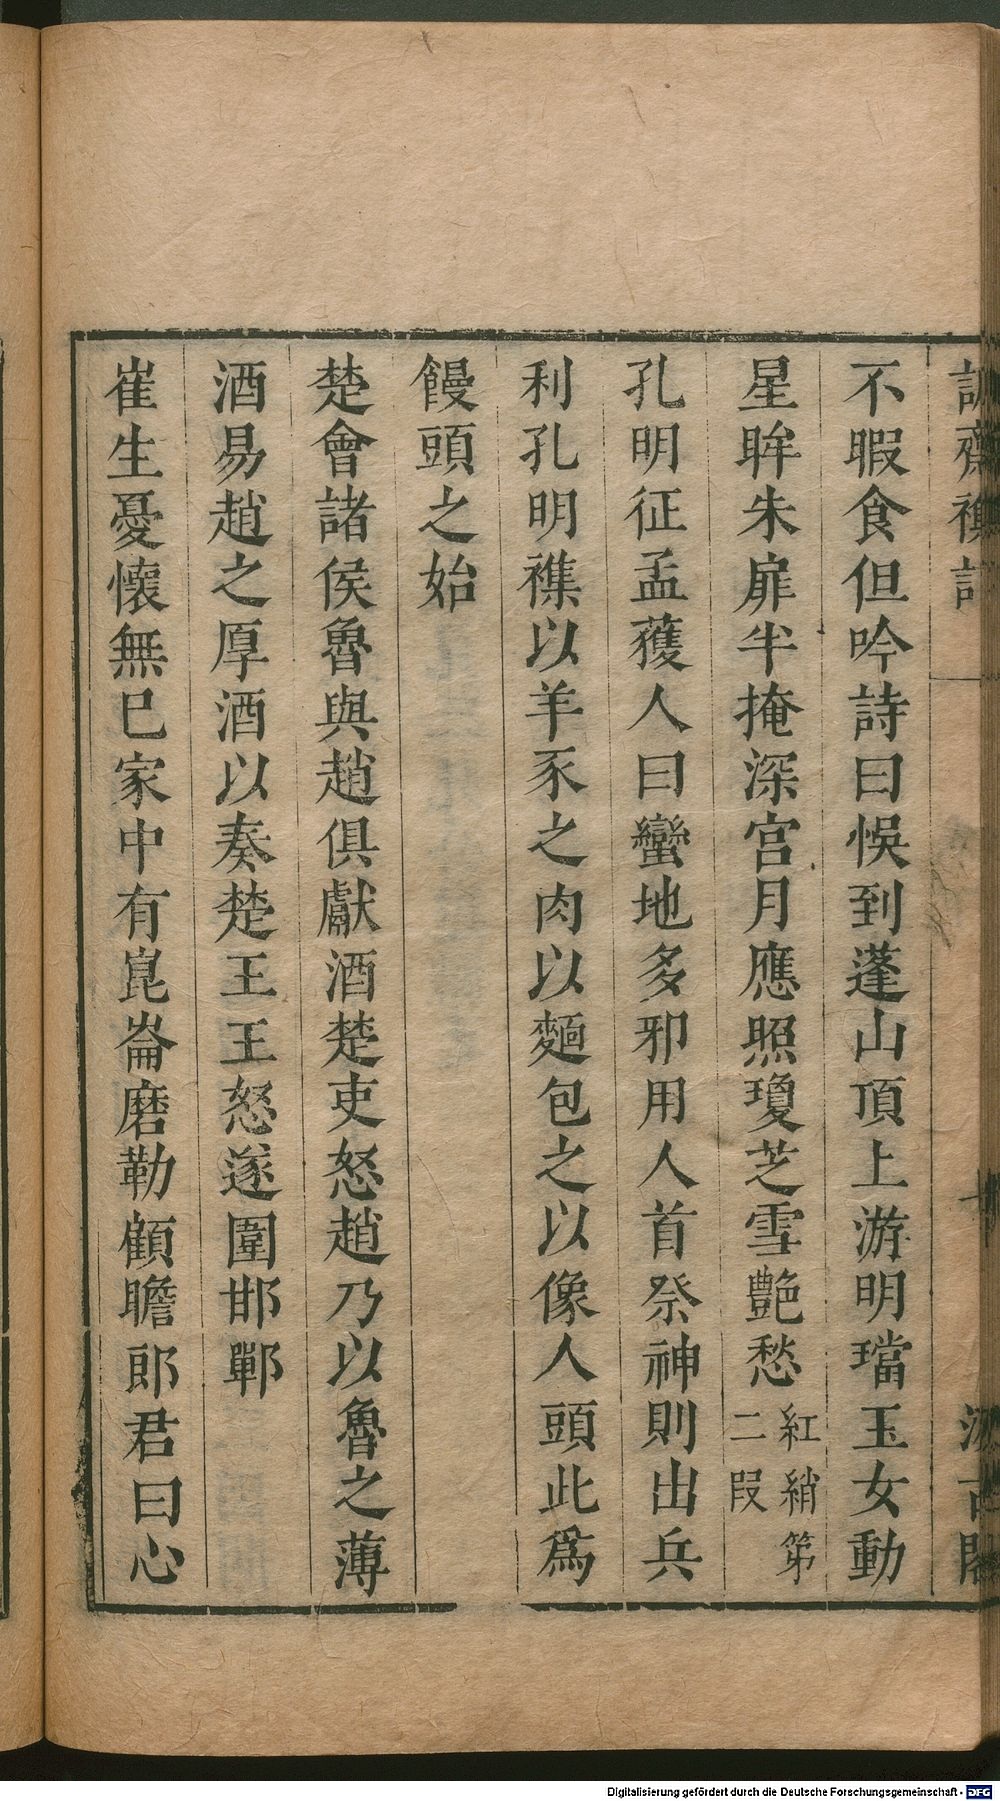 誠齋襍記
十
汲古閣
不暇食但吟詩曰悞到蓬山頂上游明璫玉女動
星眸朱扉半掩深宫月應照瓊芝雪艶愁紅綃第二叚
孔明征孟獲人曰蠻地多邪用人首祭神則出兵
利孔明襍以羊豕之肉以麵包之以像人頭此爲
饅頭之始
楚會諸侯魯與趙俱獻酒楚吏怒趙乃以魯之薄
酒易趙之厚酒以奏楚王王怒遂圍邯鄲
崔生憂懷無巳家中有崑崙磨勒顧瞻郎君曰心
Digitalisierung gefördert durch die Deutsche Forschungsgemeinschaft - DFG